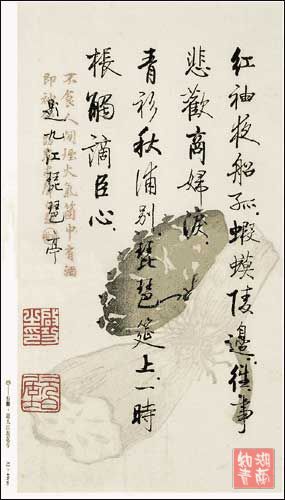 紅袖夜船孤。蝦蟆陵邊。往事
悲歡商婦淚。
青衫秋浦别。琵琶筵上。一時
棖觸謫臣心。
題九江琵琶亭
不食人間煙火氣
湖南知青